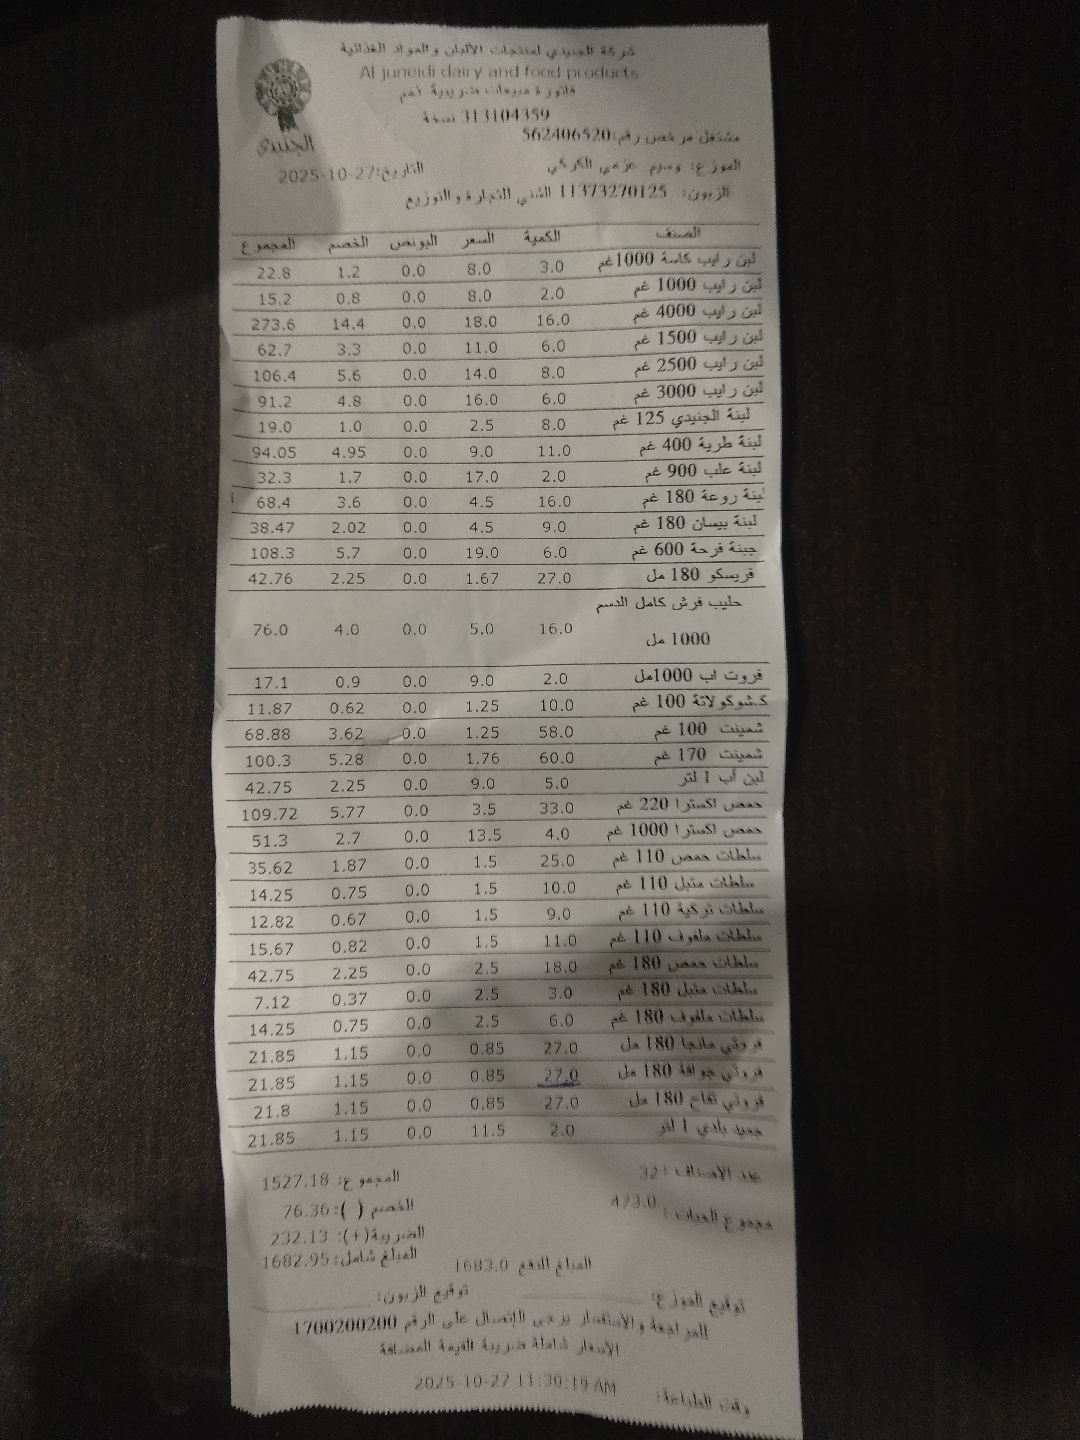 شركة الجنيدي لمنتجات الألبان والمواد الغذائية
Al juneidi dairy and food products
فاتورة مبيعات ضريبية ذمم
313104359 نسخة
مشتغل مرخص رقم:562406520
الموزع: وسيم عزمي الكركي التاريخ:27-10-2025
الزبون: 11373270125 الشني التجارة والتوزيع
الجنيدي
الصنف الكمية السعر البونص الخصم المجموع
لبن رايب كاسة 1000غم 3.0 8.0 0.0 1.2 22.8
لبن رايب 1000 غم 2.0 8.0 0.0 0.8 15.2
لبن رايب 4000 غم 16.0 18.0 0.0 14.4 273.6
لبن رايب 1500 غم 6.0 11.0 0.0 3.3 62.7
لبن رايب 2500 غم 8.0 14.0 0.0 5.6 106.4
لبن رايب 3000 غم 6.0 16.0 0.0 4.8 91.2
لبنة الجنيدي 125 غم 8.0 2.5 0.0 1.0 19.0
لبنة طرية 400 غم 11.0 9.0 0.0 4.95 94.05
لبنة علب 900 غم 2.0 17.0 0.0 1.7 32.3
لبنة روعة 180 غم 16.0 4.5 0.0 3.6 68.4
لبنة بيسان 180 غم 9.0 4.5 0.0 2.02 38.47
جبنة فرحة 600 غم 6.0 19.0 0.0 5.7 108.3
فريسكو 180 مل 27.0 1.67 0.0 2.25 42.76
حليب فرش كامل الدسم
1000 مل 16.0 5.0 0.0 4.0 76.0
فروت اب 1000مل 2.0 9.0 0.0 0.9 17.1
ك.شوكولاتة 100 غم 10.0 1.25 0.0 0.62 11.87
شمينت 100 غم 58.0 1.25 0.0 3.62 68.88
شمينت 170 غم 60.0 1.76 0.0 5.28 100.3
لبن أب 1 لتر 5.0 9.0 0.0 2.25 42.75
حمص اكسترا 220 غم 33.0 3.5 0.0 5.77 109.72
حمص اكسترا 1000 غم 4.0 13.5 0.0 2.7 51.3
سلطات حمص 110 غم 25.0 1.5 0.0 1.87 35.62
سلطات متبل 110 غم 10.0 1.5 0.0 0.75 14.25
سلطات تركية 110 غم 9.0 1.5 0.0 0.67 12.82
سلطات ملفوف 110 غم 11.0 1.5 0.0 0.82 15.67
سلطات حمص 180 غم 18.0 2.5 0.0 2.25 42.75
سلطات متبل 180 غم 3.0 2.5 0.0 0.37 7.12
سلطات ملفوف 180 غم 6.0 2.5 0.0 0.75 14.25
فروتي مانجا 180 مل 27.0 0.85 0.0 1.15 21.85
فروتي جوافة 180 مل 27.0 0.85 0.0 1.15 21.85
فروتي تفاح 180 مل 27.0 0.85 0.0 1.15 21.8
جميد بلدي 1 لتر 2.0 11.5 0.0 1.15 21.85
عدد الاصناف : 32 المجموع: 1527.18
مجموع الحبات : 473.0 الخصم ( ): 76.36
الضريبة(+): 232.13
المبلغ شامل: 1682.95
المبلغ الدفع 1683.0
توقيع الموزع: توقيع الزبون:
للمراجعة والاستفسار يرجى الإتصال على الرقم 1700200200
الأسعار شاملة ضريبة القيمة المضافة
وقت الطباعة: 2025-10-27 11:30:19 AM